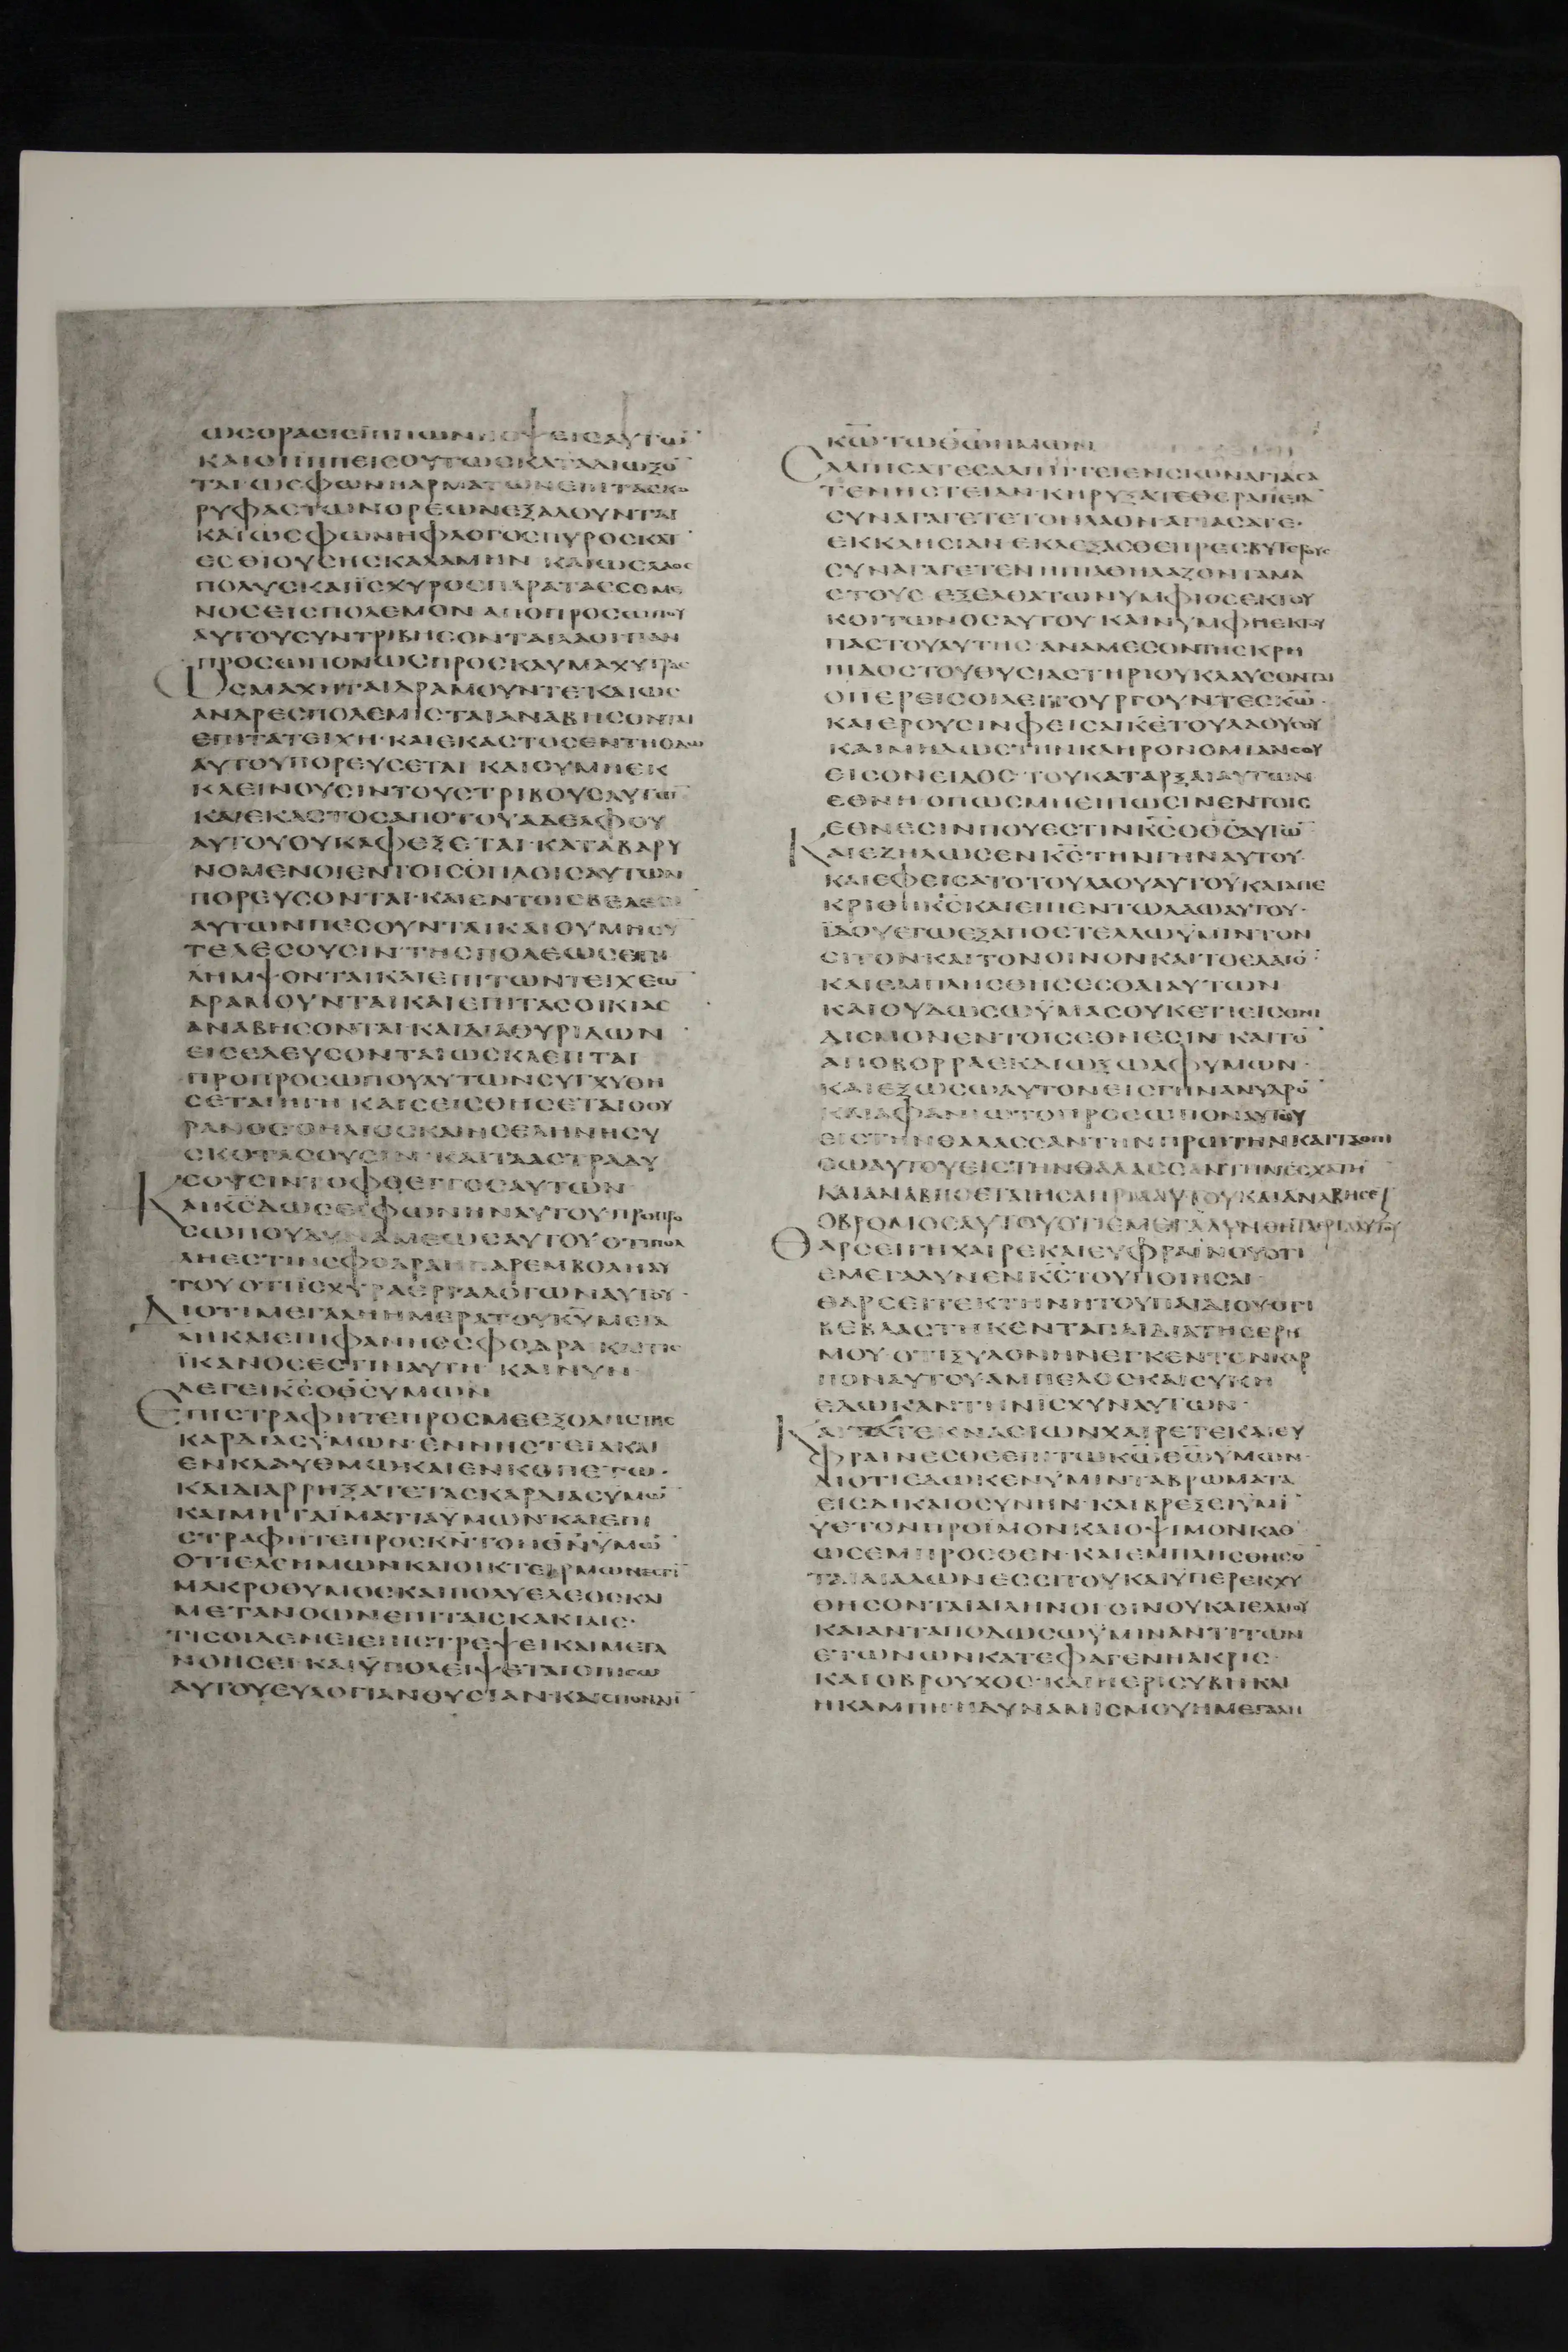 ωσορασισϊππωνηοψεισαυτω̅
καιοιϊππεισουτωσκαταδιωξο̅
ταιωσφωνηαρματωνεπιτασκο
ρυφαστωνορεωνεξαλουνται
καιωσφωνηφλογοσπυροσκατ
εσθιουσησκαλαμην καιωσλαοσ
πολυσκαιϊσχυροσπαρατασσομε
νοσεισπολεμον αποπροσωπου
αυτουσυντριβησονταιλαοιπαν
προσωπονωσπροσκαυμαχυτρασ
Ωσμαχηταιδραμουντεκαιωσ
ανδρεσπολεμισταιαναβησονται
επιτατειχη· καιεκαστοσεντηοδω
αυτουπορευσεται καιουμηεκ
κλεινουσιντουστριβουσαυτω̅
καιεκαστοσαποτουαδελφου
αυτουουκαφεξεται·καταβαρυ
νομενοιεντοισοπλοισαυτων
πορευσονται·καιεντοισβελεσι
αυτωνπεσουνταικαιουμησυ
τελεσουσιν·τησπολεωσεπι
λημψονταικαιεπιτωντειχεω̅
δραμουνταικαιεπιτασοικιασ
αναβησονται·καιδιαθυριδων
εισελευσονταιωσκλεπται
προπροσωπουαυτωνσυγχυθη
σεταιηγη καισεισθησεταιοου
ρανοσ·οηλιοσκαιησεληνησυ
σκοτασουσιν·καιτααστραδυ
σουσιντοφθεγγοσαυτων
Και̅κ̅σ̅δωσειφωνηναυτουπροπρο
σωπουδυναμεωσαυτουοτιπολ
ληεστινσφοδραηπαρεμβοληαυ
τουοτιϊσχυραεργαλογωναυτου·
Διοτιμεγαληημερατουκ̅υ̅μεγα
ληκαιεπιφανησσφοδρα·καιτισ
ϊκανοσεστιναυτη· καινυν
λεγεικ̅σ̅οθ̅σ̅υμων
Επιστραφητεπροσμεεξολησ
καρδιασϋμων·εννηστειακαι
ενκλαυθμωκαιενκοπετω·
καιδιαρρηξατετασκαρδιασϋμω̅
καιμηταϊματιαυμων·καιεπι
στραφητεπροσκ̅ν̅τονθ̅ν̅ϋμω̅
οτιελεημωνκαιοικτειρμωνεστι̅
μακροθυμοσκαιπολυελεοσκαι
μετανοωνεπιταισκακιαισ·
τισοιδενειεπιστρεψεικαιμετα
νοησει·καιϋπολειψεταιοπισω
αυτουευλογιανθυσιαν·καισπονδη̅
κ̅ω̅τωθ̅ω̅ημων
Σαλπισατεσαλπιγγιενσιωναγιασα
τενηστειαν·κηρυξατεθεραπεια̅
συναγαγετετονλαον·αγιασατε·
εκκλησιαν εκλεξασθεπρεσβυτερουσ
συναγαγετενηπιαθηλαζονταμα
στουσ·εξελθατωνυμφιοσεκτου
κοιτωνοσαυτου καινυμφηεκτου
παστουαυτησ·αναμεσοντησκρη
πιδοστουθυσιαστηριουκλαυσονται
οπερεισοιλειτουργουντεσκ̅ω̅·
καιερουσινφεισαικ̅ε̅τουλαουσου
καιμηδωστηνκληρονομιανσου
εισονειδοσ·τουκαταρξαιαυτων
εθνη·οπωσμηειπωσινεντοισ
εθνεσινπουεστινκ̅σ̅οθ̅σ̅αυτω̅
Καιεζηλωσενκ̅σ̅τηνγηναυτου·
καιεφεισατοτουλαουαυτουκαιαπε
κριθηκ̅σ̅καιειπεντωλαωαυτου·
ϊδουεγωεξαποστελλωϋμιντον
σιτονκαιτονοινονκαιτοελαιο̅
καιεμπλησθησεσθαιαυτων
καιουδωσωϋμασουκετιεισονι
δισμονεντοισεθνεσιν καιτο̅
αποβορραεκδιωξωαφυμων·
καιεξωσωαυτονεισγηνανυδρο̅
καιαφανιωτοπροσωποναυτου
ειστηνθαλασσαντηνπρωτηνκαιταοπι
σωαυτουειστηνθαλασσαντηνεσχατη̅
καιαναβησεταιησαπριααυτουκαιαναβησετ
οβρομοσαυτουοτιεμεγαλυνθηταεργααυτου
Θαρσειγηχαιρεκαιευφραινουοτι
εμεγαλυνενκ̅σ̅τουποιησαι
θαρσειτεκτηνητουπαιδιουοτι
βεβλαστηκενταπαιδιατησερη
μου·οτιξυλονηνεγκεντονκαρ
ποναυτουαμπελοσκαισυκη
εδωκαντηνϊσχυναυτων·
Καιτατεκνασιωνχαιρετεκαιευ
φραινεσθεεπιτωκ̅ω̅θ̅ω̅υμων·
διοτιεδωκενϋμινταβρωματα
εισδικαιοσυνην·καιβρεξειϋμι̅
ϋετονπροϊμονκαιοψιμονκαθ
ωσεμπροσθεν·καιεμπλησθησο̅
ταιαιαλωνεσσιτουκαιϋπερεκχυ
θησονταιαιληνοιοινουκαιελαιου
καιανταποδωσωϋμιναντιτων
ετωνωνκατεφαγενηακρισ·
καιοβρουχοσ·καιηερισυβηκαι
ηκαμπη·ηδυναμισμουημεγαλη